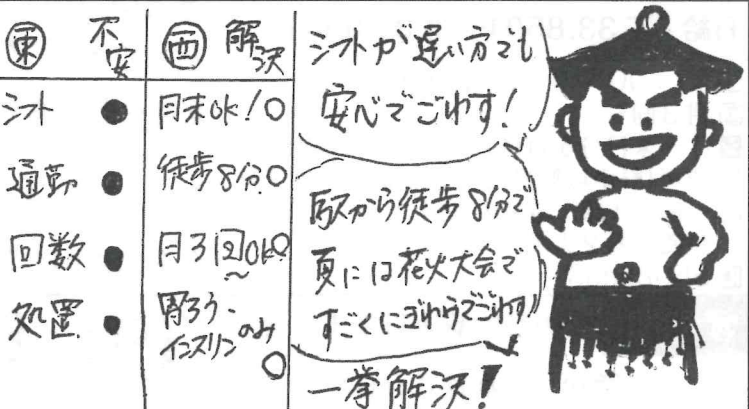 東 不安 西 解決
シフト ● 月末OK!○
通勤 ● 徒歩8分○
回数 ● 月3回OK○
処置 ● 胃ろう・インスリンのみ○
シフトが遅い方でも
安心でごわす!
駅から徒歩8分で
夏には花火大会で
すごくにぎわうでごわす
一挙解決!